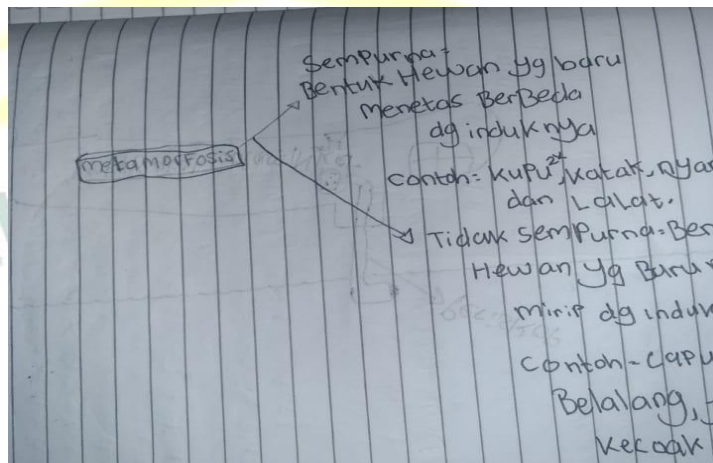 Sempurna =
Bentuk Hewan yg baru
menetas BerBeda
dg induknya
metamorfosis
contoh = kupu²", katak, nyam
dan Lalat.
Tidak sempurna = Ben
Hewan yg Baru
mirip dg induk
contoh - capu
Belalang,
kecoak